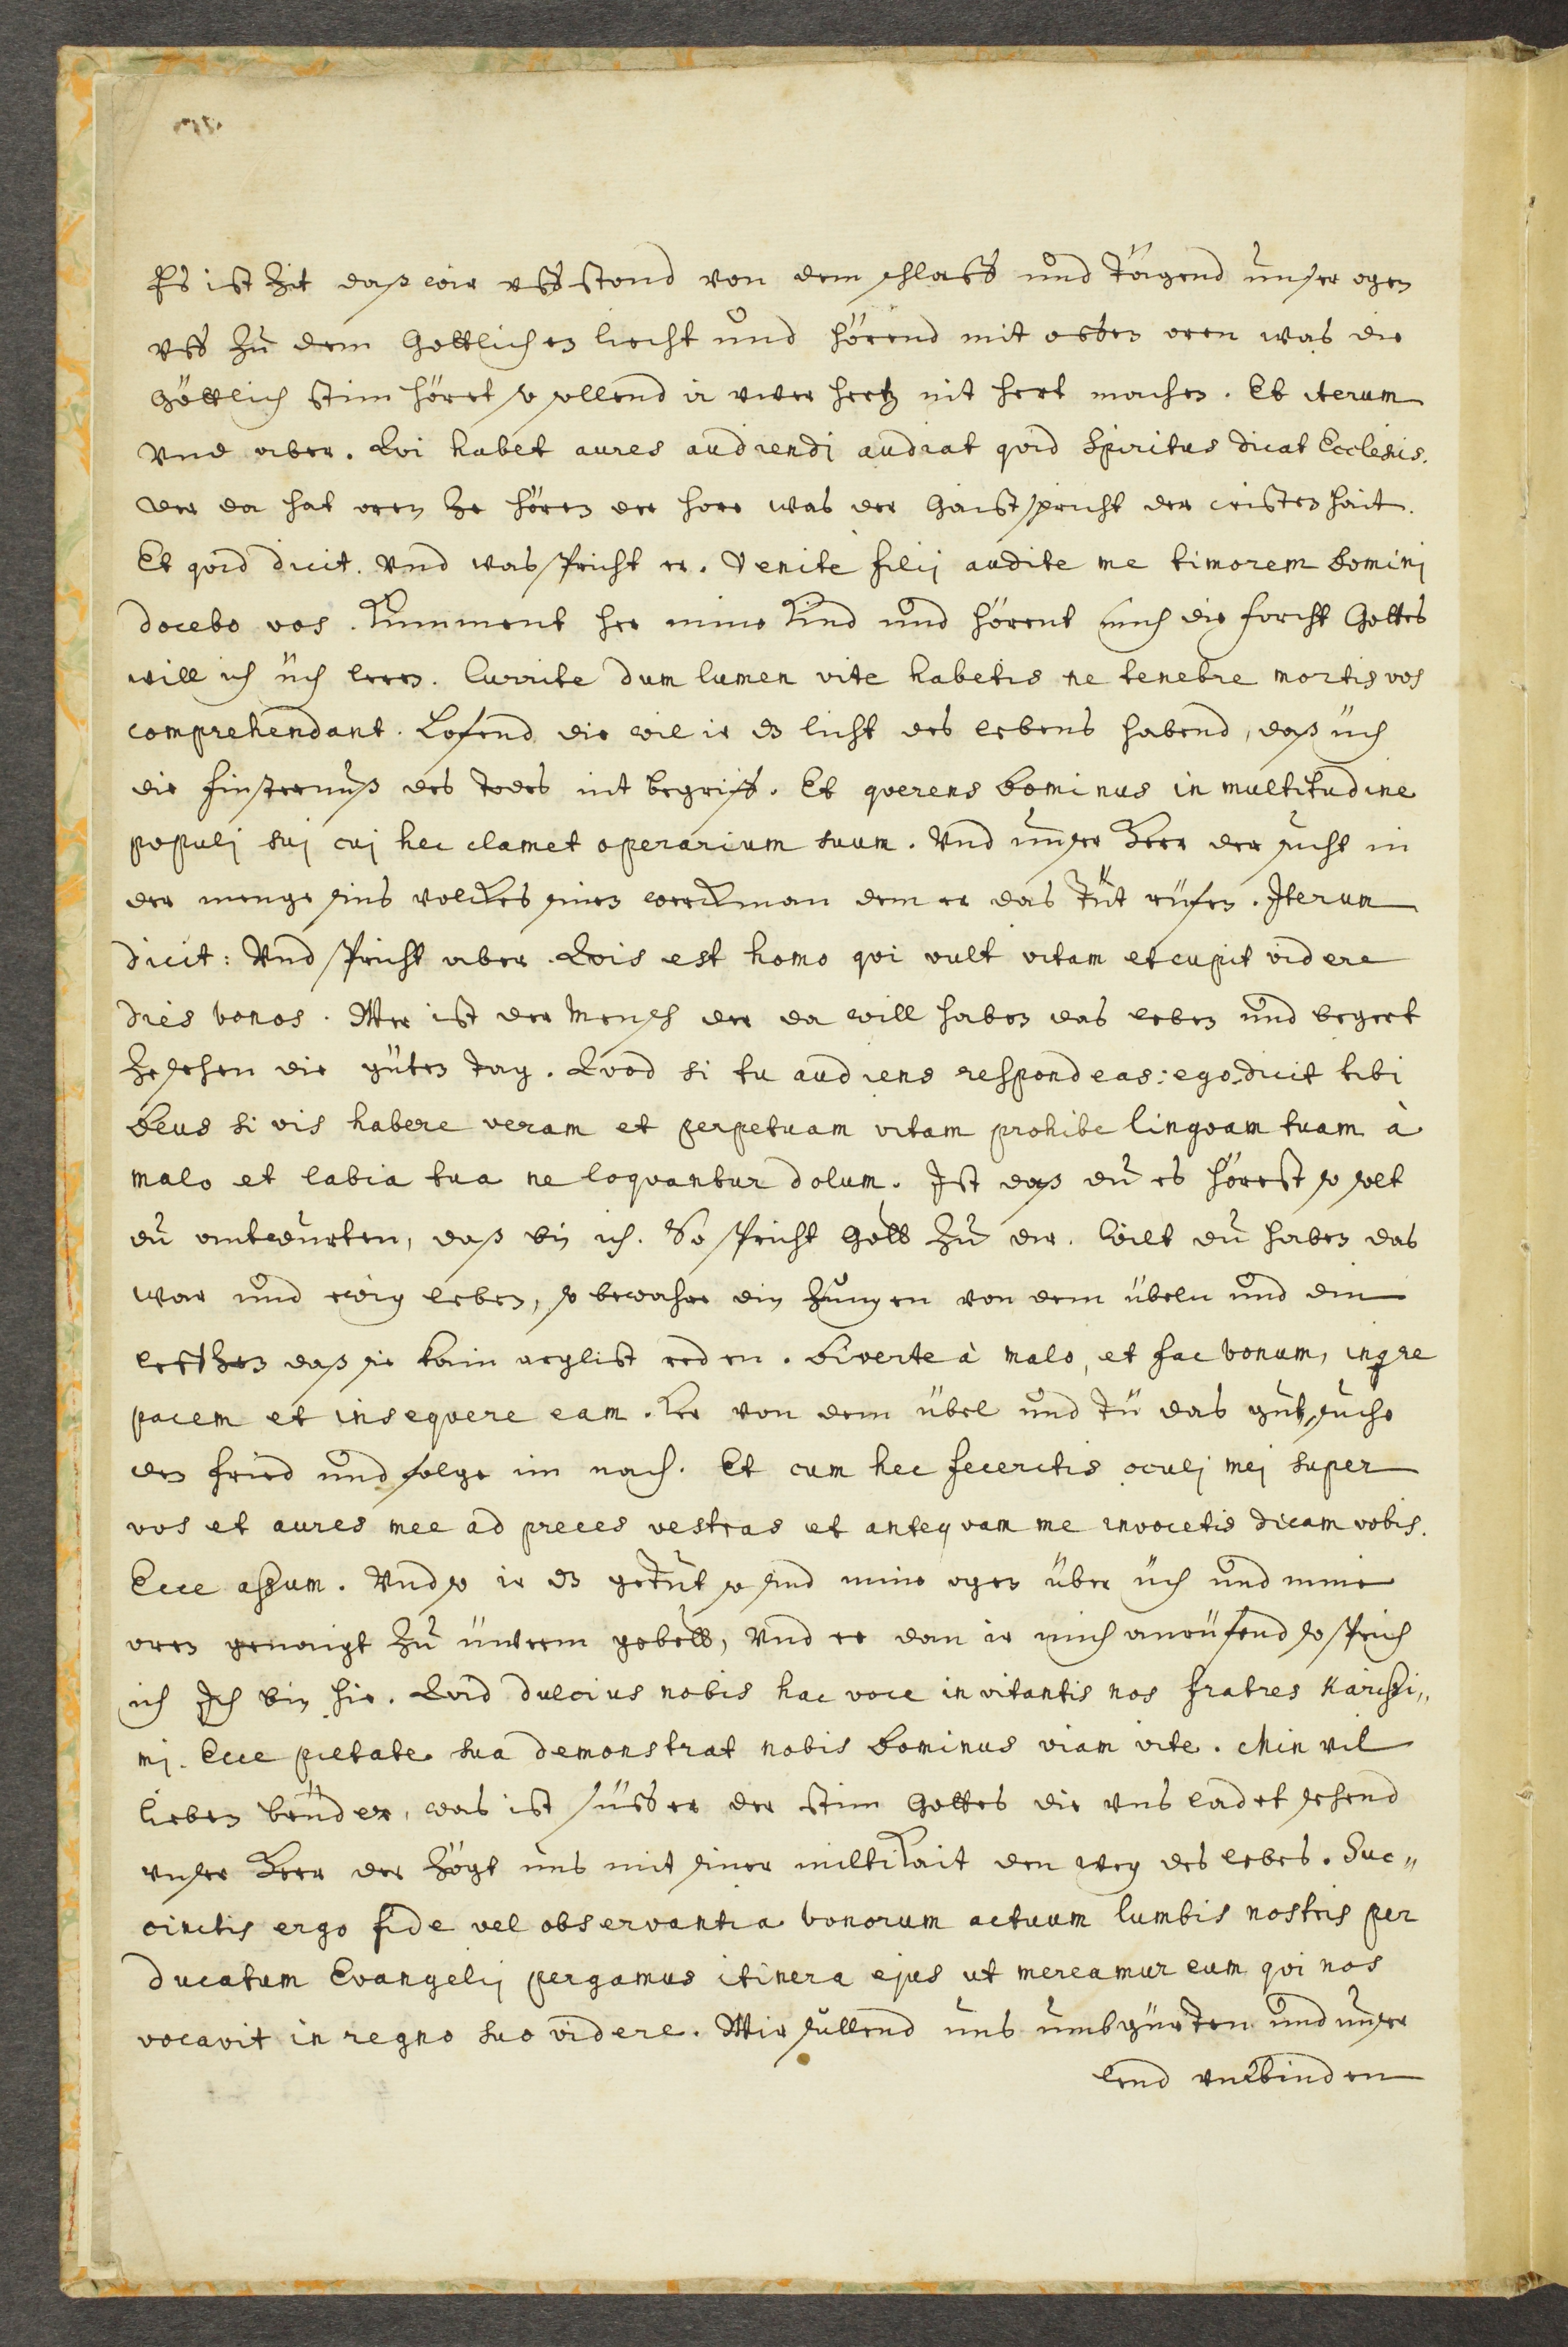 Es ist Zit daß wir uff stond von dem schlaff und Tögend unser ogen
uff zu dem Gottlichen liecht und hörend mit offen oren was die
Göttlich stim höret so sollend ir uwer hertz nit hert machen. Et iterum
Und aber. Qvi habet aures audiendi audiat qvid Spiritus dicat Ecclesiis.
Der da hat oren ze hören der höre was der Gaist spricht der cristenhait.
Et qvid dicit. Und was spricht er. Venite filij audite me timorem Dominj
docebo vos. Kumment her mine Kind und hörent mich die forcht Gottes
will ich üch leren. Currite dum lumen vite habetis ne tenebre mortis vos
comprehendant. Lofend die wil ir dz licht des lebens habend, daß üch
die finsternuß des todes nit begriff. Et qverens Dominus in multitudine
populj suj cuj hec clamet operarium suum. Und unser Herr der sucht in
der menge sins volckes sinen werckman dem er das Tut rüfen. Iterum
dicit: Und spricht aber. Qvis est homo qvi vult vitam et cupit videre
dies bonos. Wer ist der Mensch der da will haben das leben und begert
ze sehen die güten tag. Qvod si tu audiens respondeas: ego, dicit tibi
Deus si vis habere veram et perpetuam vitam prohibe lingvam tuam à
malo et labia tua ne loqvantur dolum. Ist daß du es hörest so solt
du antwurten, daß bin ich. So spricht Gott zu dir. Wilt du haben das
war und ewig leben, so bewahre din Zungen von dem übeln und din
lefftzen daß sie kain arglist reden. Diverte à malo, et fac bonum, inqre
pacem et inseqvere eam. Ker von dem übel und tu das gut, suche
den frid und folge im nach. Et cum hec feceritis oculj mej super
vos et aures mee ad preces vestras et anteqvam me invocetis dicam vobis.
Ecce assum. Und so ir dz getut so sind mine ogen über üch und mine
oren genaigt zu üwerm gebett, Und ee dan ir mich anrüfend so sprich
ich Ich bin hie. Qvid dulcius nobis hac voce invitantis nos fratres Karissi„
mj. Ecce pietate sua demonstrat nobis Dominus viam vite. Min vil
lieben brüder, was ist süsser der stim Gottes die uns ladet sehend
unser Herr der zögt uns mit siner miltikait den weg des lebes. Suc„
cinctis ergo fide vel observantia bonorum actuum lumbis nostris per
ducatum Evangelij pergamus itinera ejus ut mereamur eum qvi nos
vocavit in regno suo videre. Wir sullend uns umbgürten und unser
lend verbinden